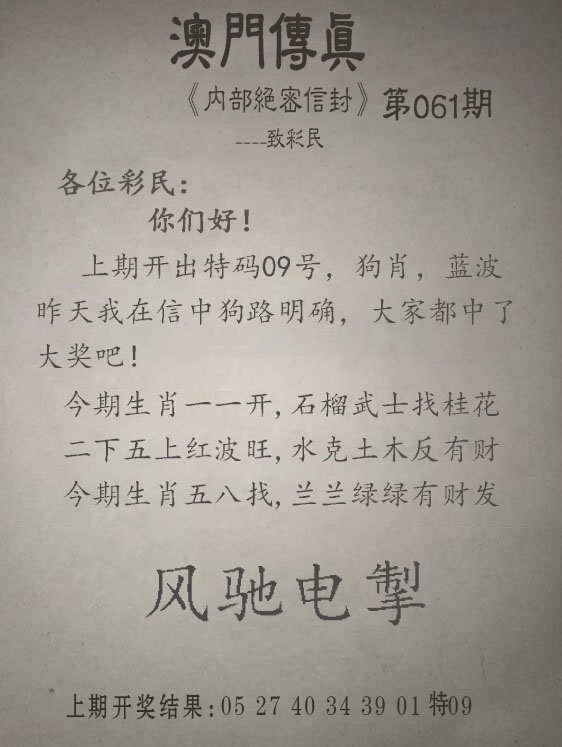 澳門傳真
《内部絕密信封》第061期
----致彩民
各位彩民：
你们好！
上期开出特码09号，狗肖，蓝波
昨天我在信中狗路明确，大家都中了
大奖吧！
今期生肖一一开,石榴武士找桂花
二下五上红波旺,水克土木反有财
今期生肖五八找,兰兰绿绿有财发
风驰电掣
上期开奖结果:05 27 40 34 39 01 特09